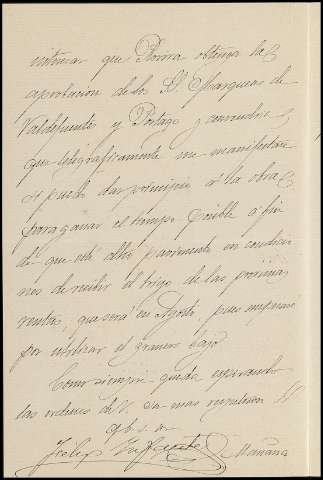 que Rivera obtenga la
aprobacion de los S. S. Marqueses de
Valdefuente y Portago y
que telegraficamente me manifestára
si puedo dar principio á la obra
para ganar el tiempo posible á fin
de que este alto pavimento en condicio
nes de recibir el trigo de las próximas
rentas, que será en Agosto, pues empezaré
por utilizar el granero bajo
Como siempre queda esperando
las ordenes de V. su mas respetuoso S. S.
q. b. s. m.
Felip Infante Mañana